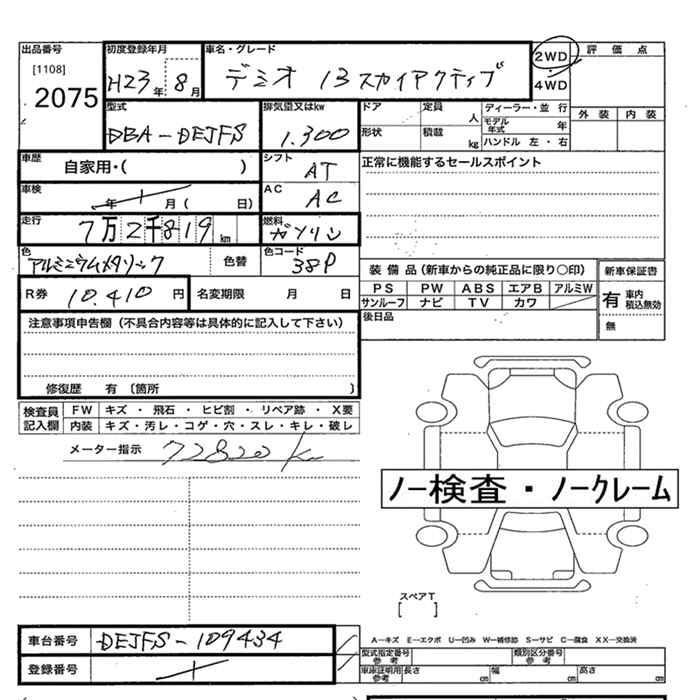 出品番号 初度登録年月 車名・グレード 2WD 評価点
[1108] H23年 8月 デミオ 13スカイアクティブ 4WD
2075 外装 内装
型式 排気量又はkw ドア 定員 人 ディーラー・並行
DBA-DEJFS 1.300 形状 積載 kg モデル年式 年
ハンドル 左・右
車歴 自家用・( ) シフト AT 正常に機能するセールスポイント
車検 年 月( 日) AC AC
走行 7万2千819km 燃料 ガソリン
色 アルミニウムメタリック 色替 色コード 38P
R券 10.410円 名変期限 月 日
装備品(新車からの純正品に限り○印) 新車保証書
PS PW ABS エアB アルミW 有 車内積込無効
サンルーフ ナビ TV カワ
後日品 無
注意事項申告欄(不具合内容等は具体的に記入して下さい)
修復歴 有〔箇所 〕
検査員 FW キズ・飛石・ヒビ割・リペア跡・X要
記入欄 内装 キズ・汚レ・コゲ・穴・スレ・キレ・破レ
メーター指示 72820 km
ノー検査・ノークレーム
スペアT
[ ]
車台番号 DEJFS-109434
登録番号
A-キズ E-エクボ U-凹み W-補修跡 S-サビ C-腐食 XX-交換済
型式指定番号 参考 類別区分番号 参考
車庫証明用 参考 長さ cm 幅 cm 高さ cm